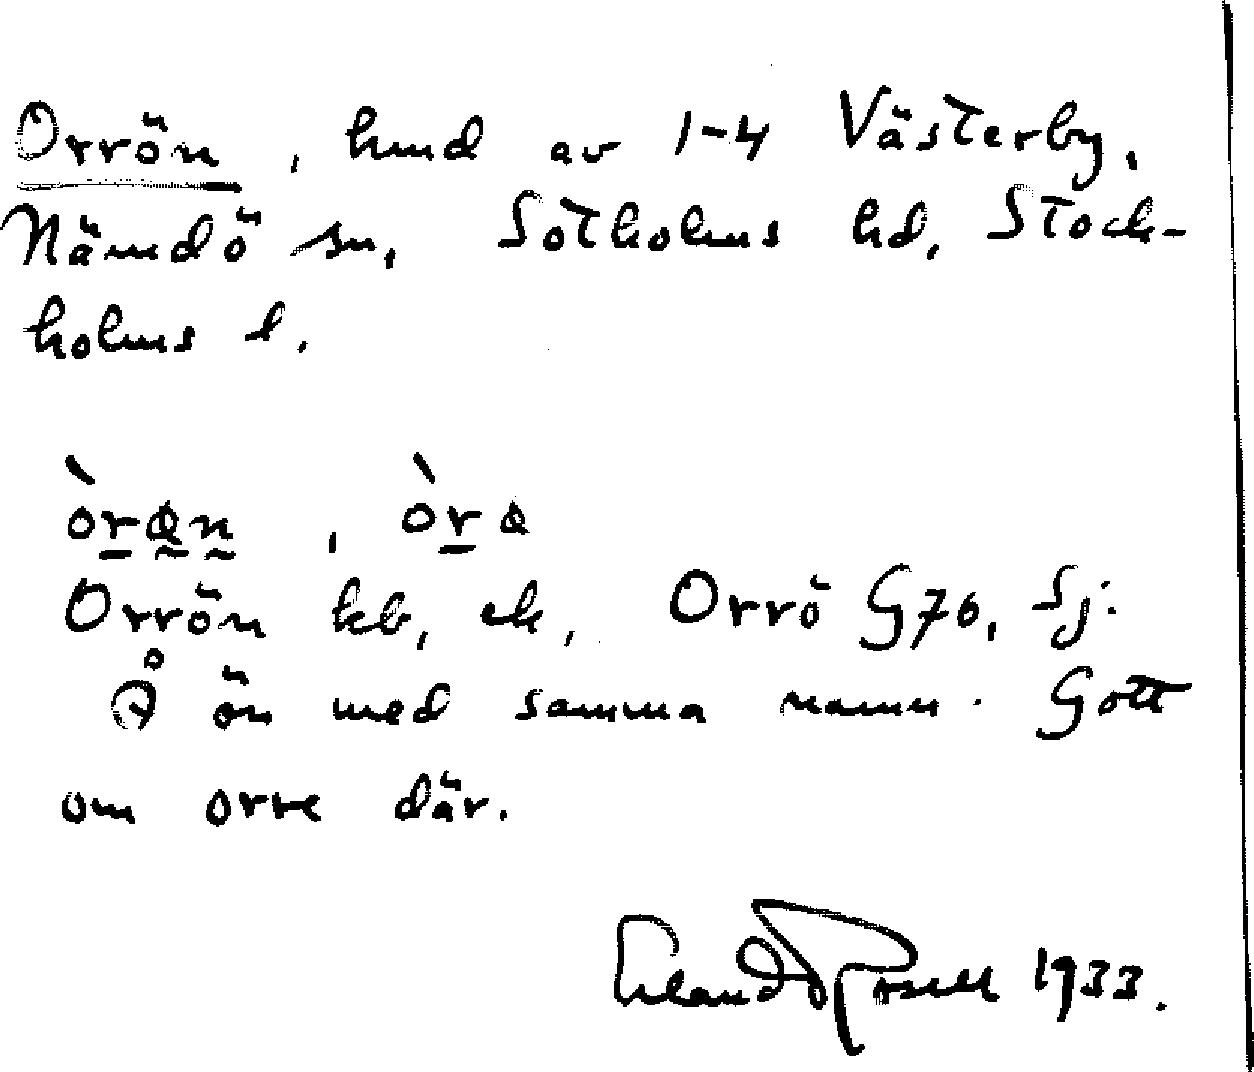 Orrön, hmd av 1-4 Västerby,
Nämdö sn, Sotholms hd, Stock-
holms l.
òrøn, òrø
Orrön kb, ek, Orrö G76, Sj.
Å ön med samma namn. Gott
om orre där.
Erland Rosell 1933.